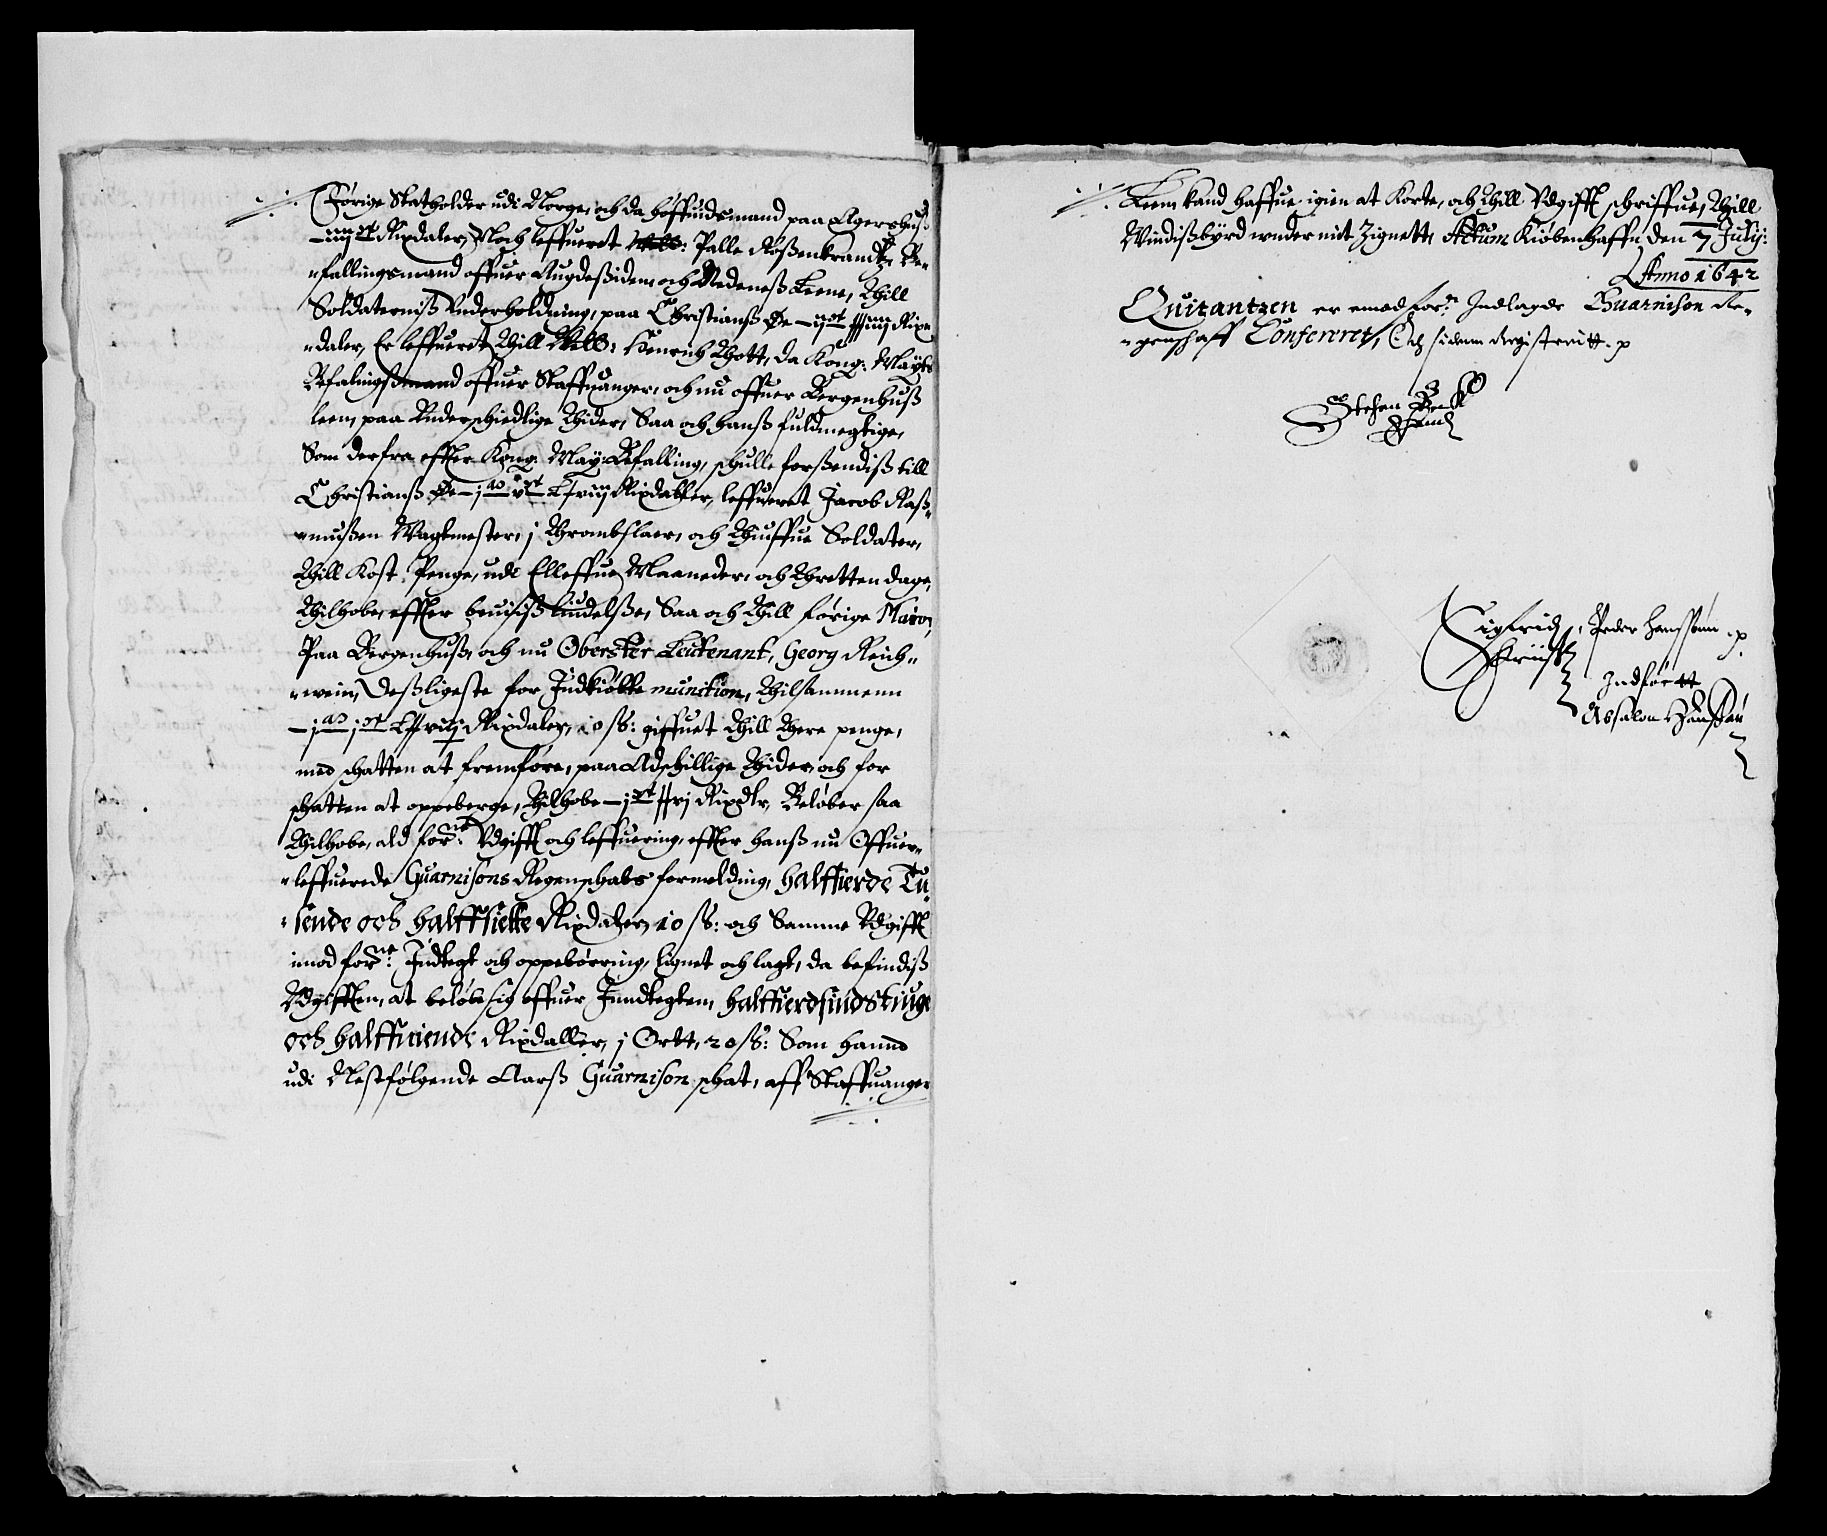 Forige Statholder udi Norge, och da höffuidsmand paa Agershuß
iiij ct Rixdaler, Noch leffueret Welb: Palle Rosenkrandtz Be„
„fallingsmand offuer Augdeßiden och Nedeneß Leene, Thill
Soldaterniß Underholdning, paa Christianß Øe Rix„
„daler, Er leffueret Thill Welb: Henrich Thott, da Kong: Mayts
Befalingßmand offuer Staffuanger, och nu offuer Bergenhuß
leen, paa Underschiedlige Thider, Saa och hanß fuldmegtige,
Som derfra effter Kong: May: Befalling, schulle forßendiß till
Christianß Øe Rixdaller, leffueret Jacob Raß„
„mußen Wagtmester, j Thrombslaer, och Thiuffue Soldater,
Thill Kost Penge, udi Elleffue Maaneder, och Thretten dage,
Thilhobe, effter beuisiß liudelße, Saa och Thill forige Maior,
Paa Bergenhuß, och nu Oberster Leutenant, Georg Reich„
„wein, Deßligeste for Indkiöbte munition, Thilsammenn
Rixdaler, 10 ß: giffuet Thill There penge,
med schatten at fremföre, paa Adschillige Thider, och for
schatten at oppeberge, Thilhobe Rixdlr, Beløber saa
Thilhobe, ald forne: Udgifft och leffuering, effter hanß nu Offuer„
„leffuerede Guarnisons Regenschabs formelding, halffierde Tu„
„sende och halffsiette Rixdaler, 10 ß: och Samme Udgifft
imod forne: Indtegt och oppebörring, lignet och lagt, da befindiß
Udgifften, at beløbe sig offuer Inndtegten, halffierdsindstiuge
och halfftiende Rixdaller, j Ortt, 20 ß: Som hannd
udi Nestfølgende Aarß Guarnison schat, aff Staffuanger
Leen kand haffue igien at Korte, och Thill Udgifft schriffue, Thill
Windißbyrd under mit Zignett, Actum Kiøbenhaffn, den 7 Julij:
Anno 1642
Quitantzen er emod forne Indlagde Guarnison Re„
„genschaff Conferert, Och siden Registreritt. p
Stehen Beck
Egenh
Sigfrid
Peder Hanssønn. p.
Indførtt
Absalon Hanßøn